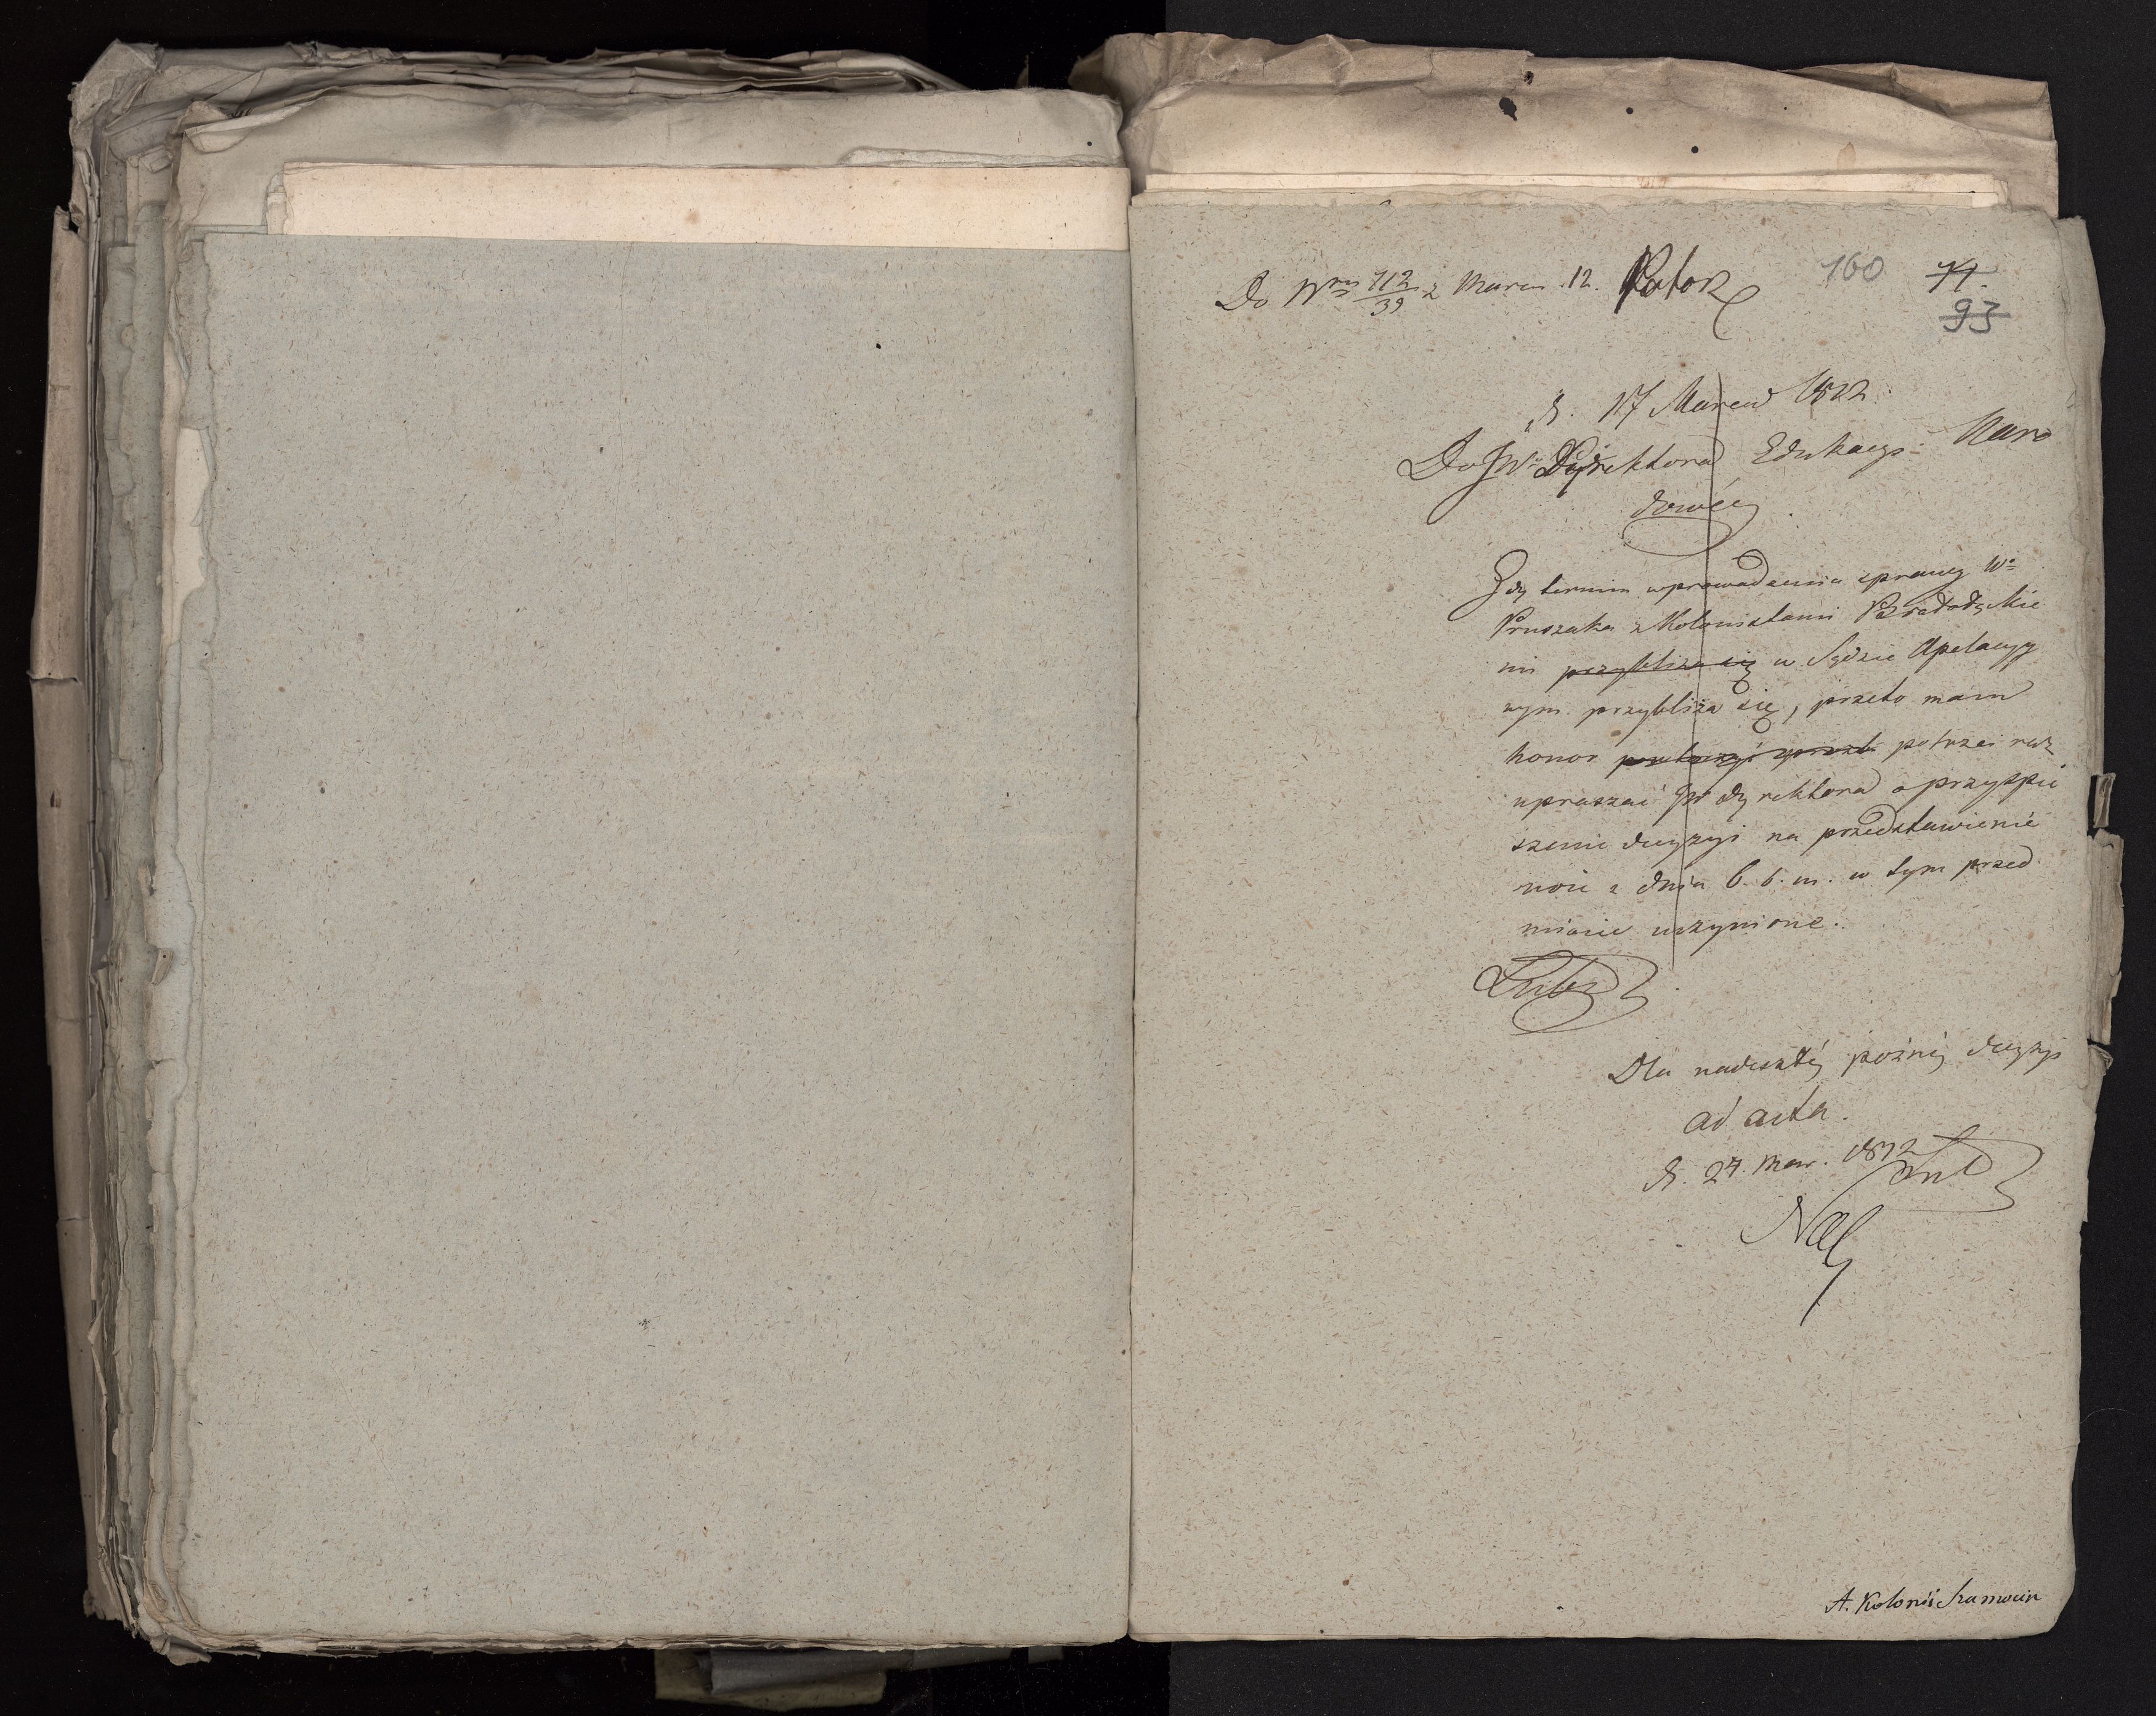 Do Nru 112/39 z Marca 12.
160
71.
93
d. 17 Marca 1812
Do JW. Dyrektora Edukacyi Naro
dowéy
Gdy termin wprowadzenia sprawy W.
Pruszaka z Kolonistami
mi przybliża się w Sądzie Apelacyy
nym przybliża się, przeto mam
honor potrzeci raz
upraszać JW Dyrektora o przyspie
szenie decyzyi na przedstawienie
moie z dnia 6. b. m. w tym przed
miocie uczynione.
Dla nadeszłéy poźniéy decyzyi
ad acta.
d. 27. Mar. 1812
A. Kolonii Szamocin